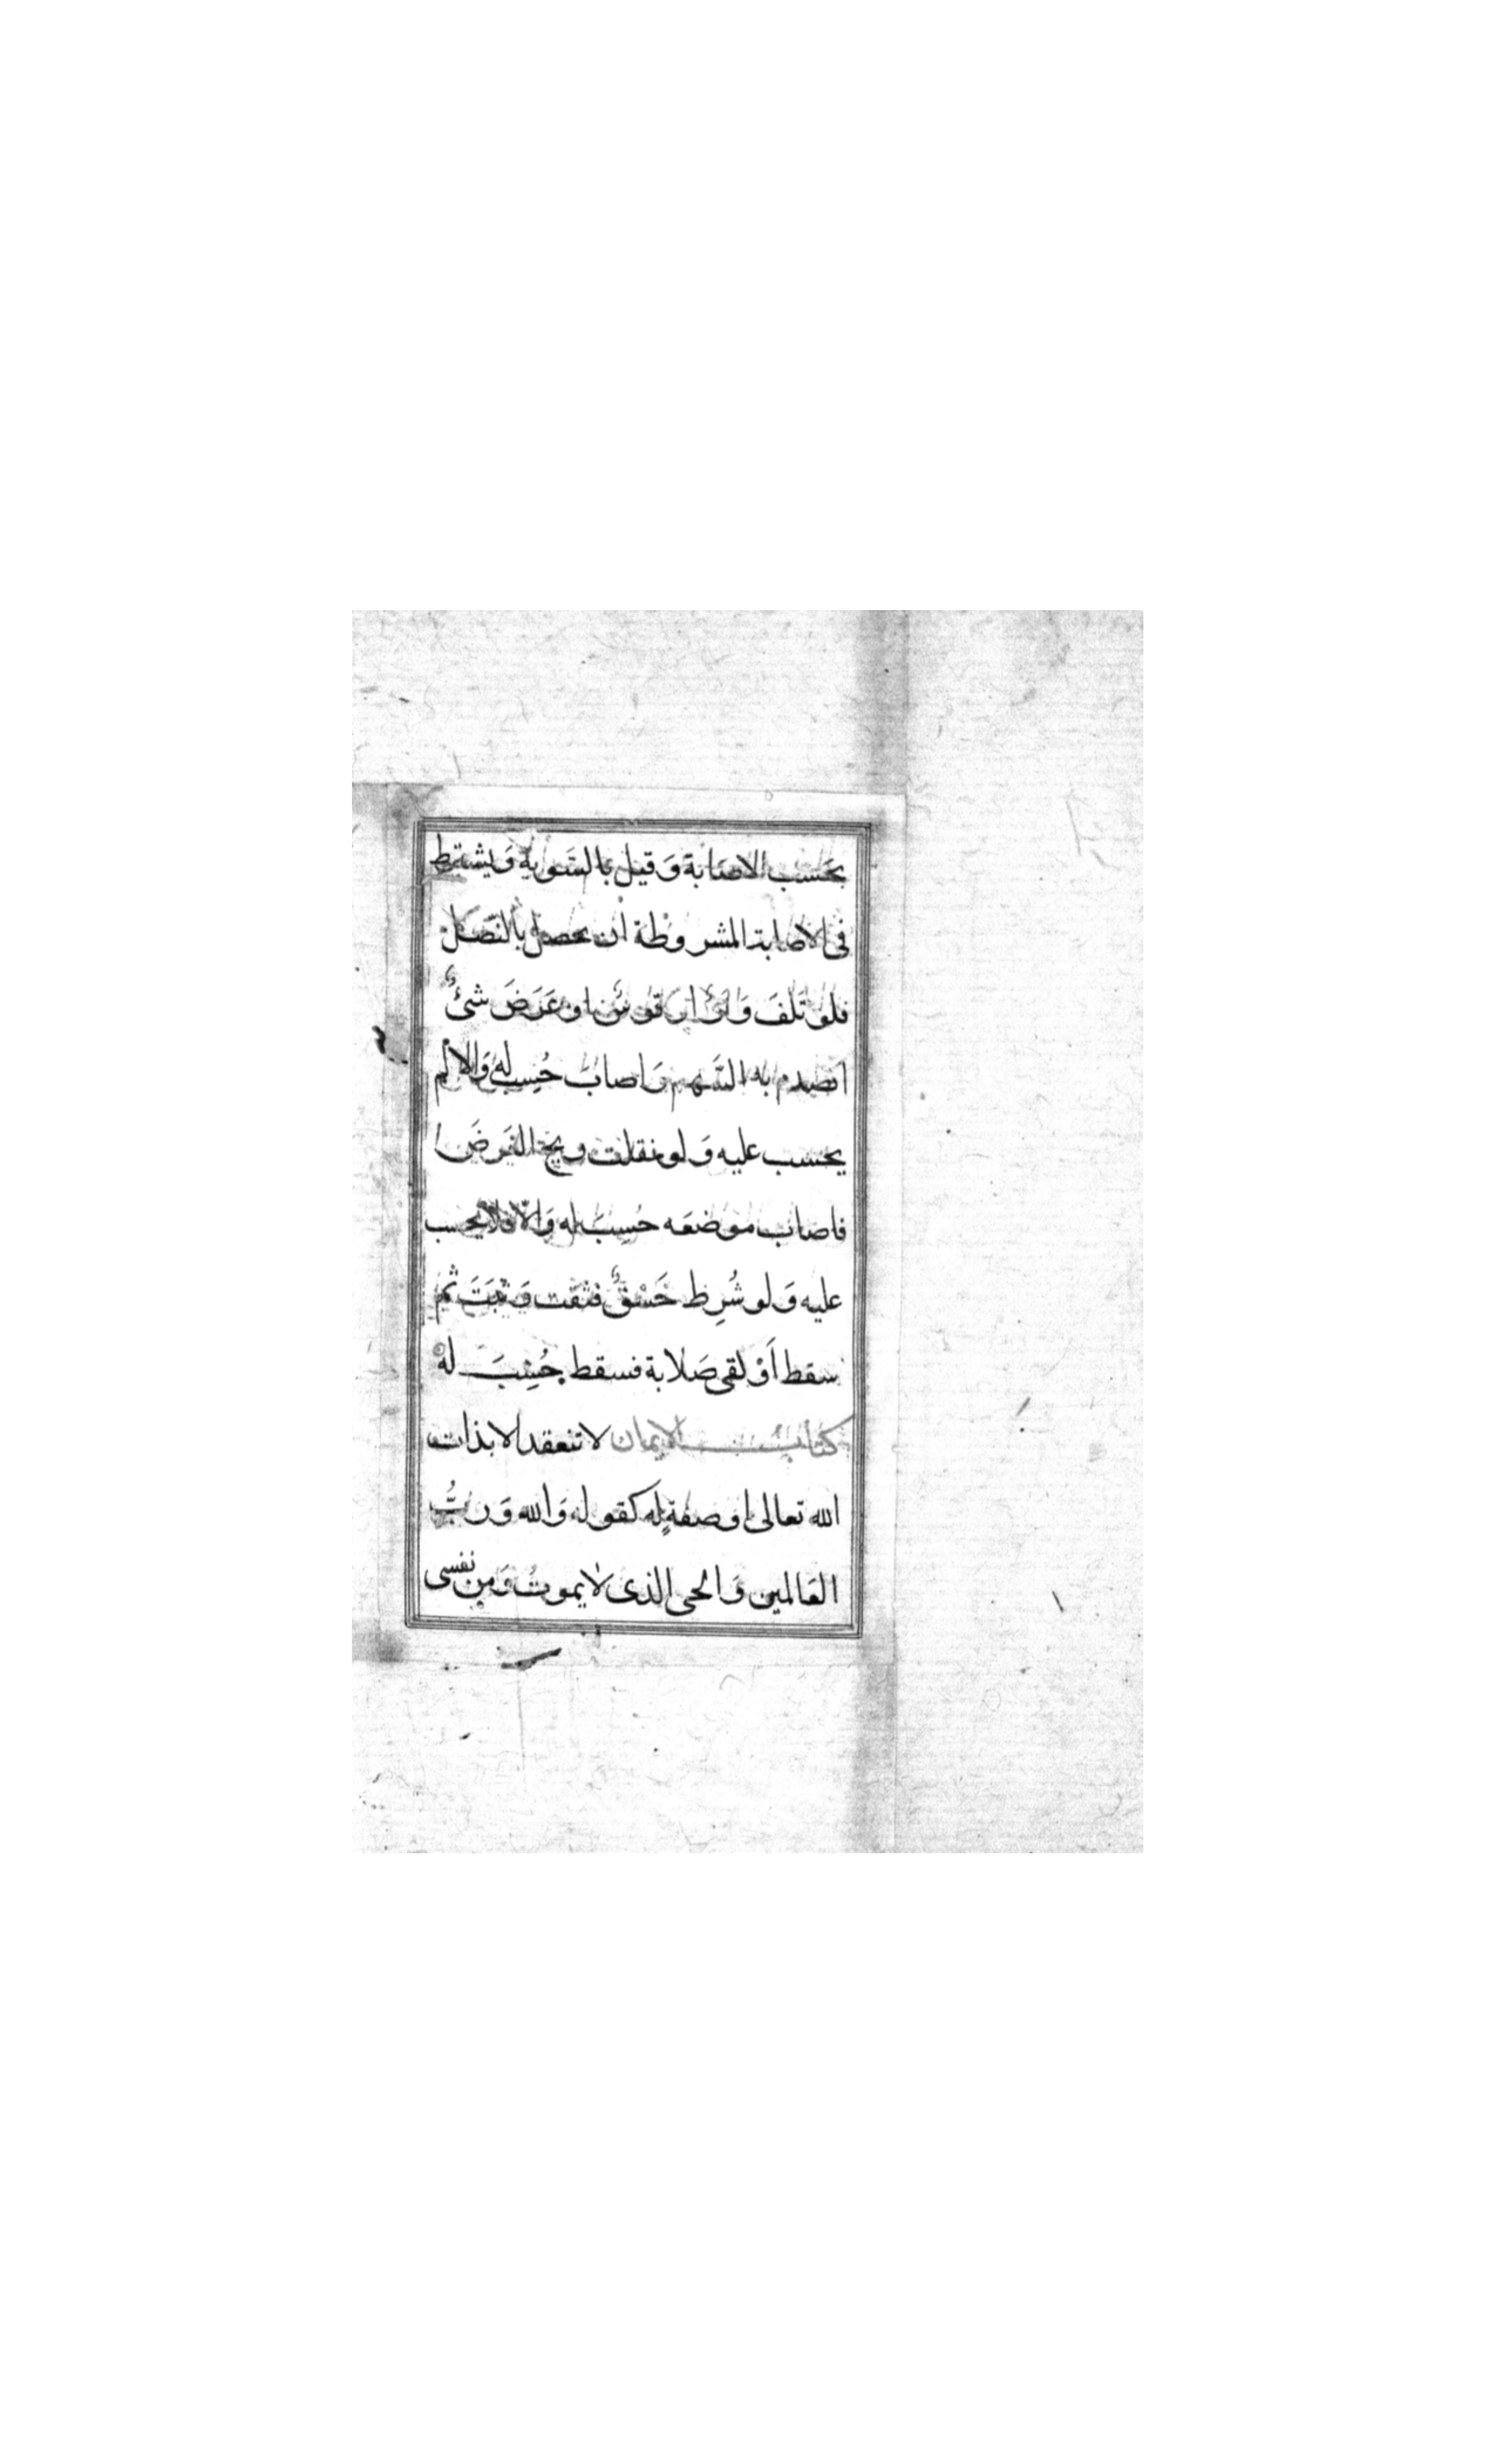 بحَسب الاصَابة وَقيل بالسَّوية وَيشترط
فى الاصابة المشروطة أن يحصل بالنّصَل
فلو تَلفَ وَترٌ او قوسٌ او عَرَضَ شئٌ
انصدم به السَّهم وَاصاب حُسِب له وَالا لم
يحسب عليه وَلو نقلت ريح الغَرضَ
فاصاب موضعَه حُسِبَ له وَالّا فلا يحسب
عليه وَلو شُرِط خَسْقٌ فثقبَ وَثبَتَ ثم
سقط اَوْ لقى صَلابة فسقط حُسِبَ له
كتاب الايمان لا تنعقد الا بذات
الله تعالى او صفةٍ له كقوله وَالله وَربُّ
العَالمين وَالحى الذى لا يموتُ وَمن نفسى